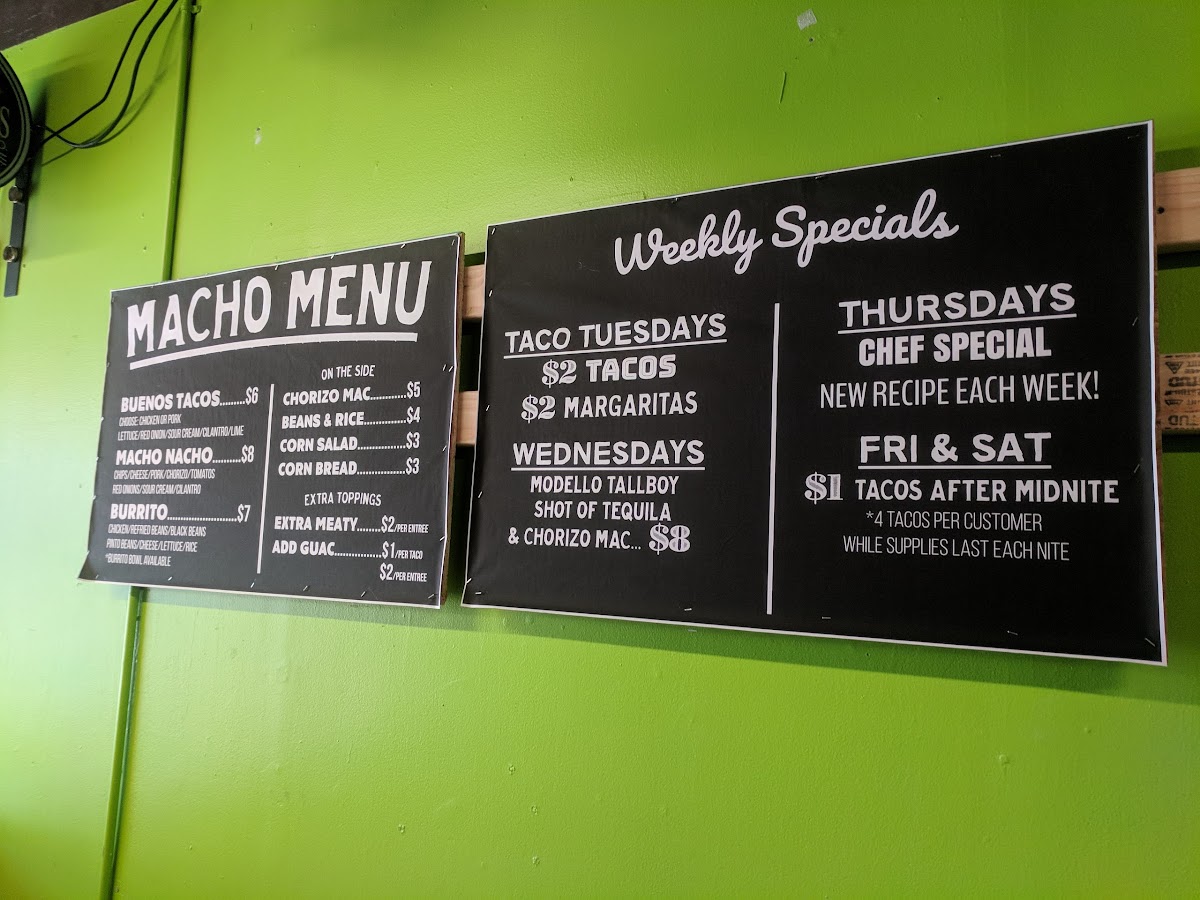 MACHO MENU
BUENOS TACOS........$6
CHOOSE: CHICKEN OR PORK
LETTUCE/RED ONION/SOUR CREAM/CILANTRO/LIME
MACHO NACHO........$8
CHIPS/CHEESE/PORK/CHORIZO/TOMATOS
RED ONIONS/SOUR CREAM/CILANTRO
BURRITO....................$7
CHICKEN/REFRIED BEANS/BLACK BEANS
PINTO BEANS/CHEESE/LETTUCE/RICE
*BURRITO BOWL AVAILABLE
ON THE SIDE
CHORIZO MAC............$5
BEANS & RICE..............$4
CORN SALAD................$3
CORN BREAD................$3
EXTRA TOPPINGS
EXTRA MEATY........$2/PER ENTREE
ADD GUAC...............$1/PER TACO
$2/PER ENTREE
Weekly Specials
TACO TUESDAYS
$2 TACOS
$2 MARGARITAS
WEDNESDAYS
MODELLO TALLBOY
SHOT OF TEQUILA
& CHORIZO MAC... $8
THURSDAYS
CHEF SPECIAL
NEW RECIPE EACH WEEK!
FRI & SAT
$1 TACOS AFTER MIDNITE
*4 TACOS PER CUSTOMER
WHILE SUPPLIES LAST EACH NITE